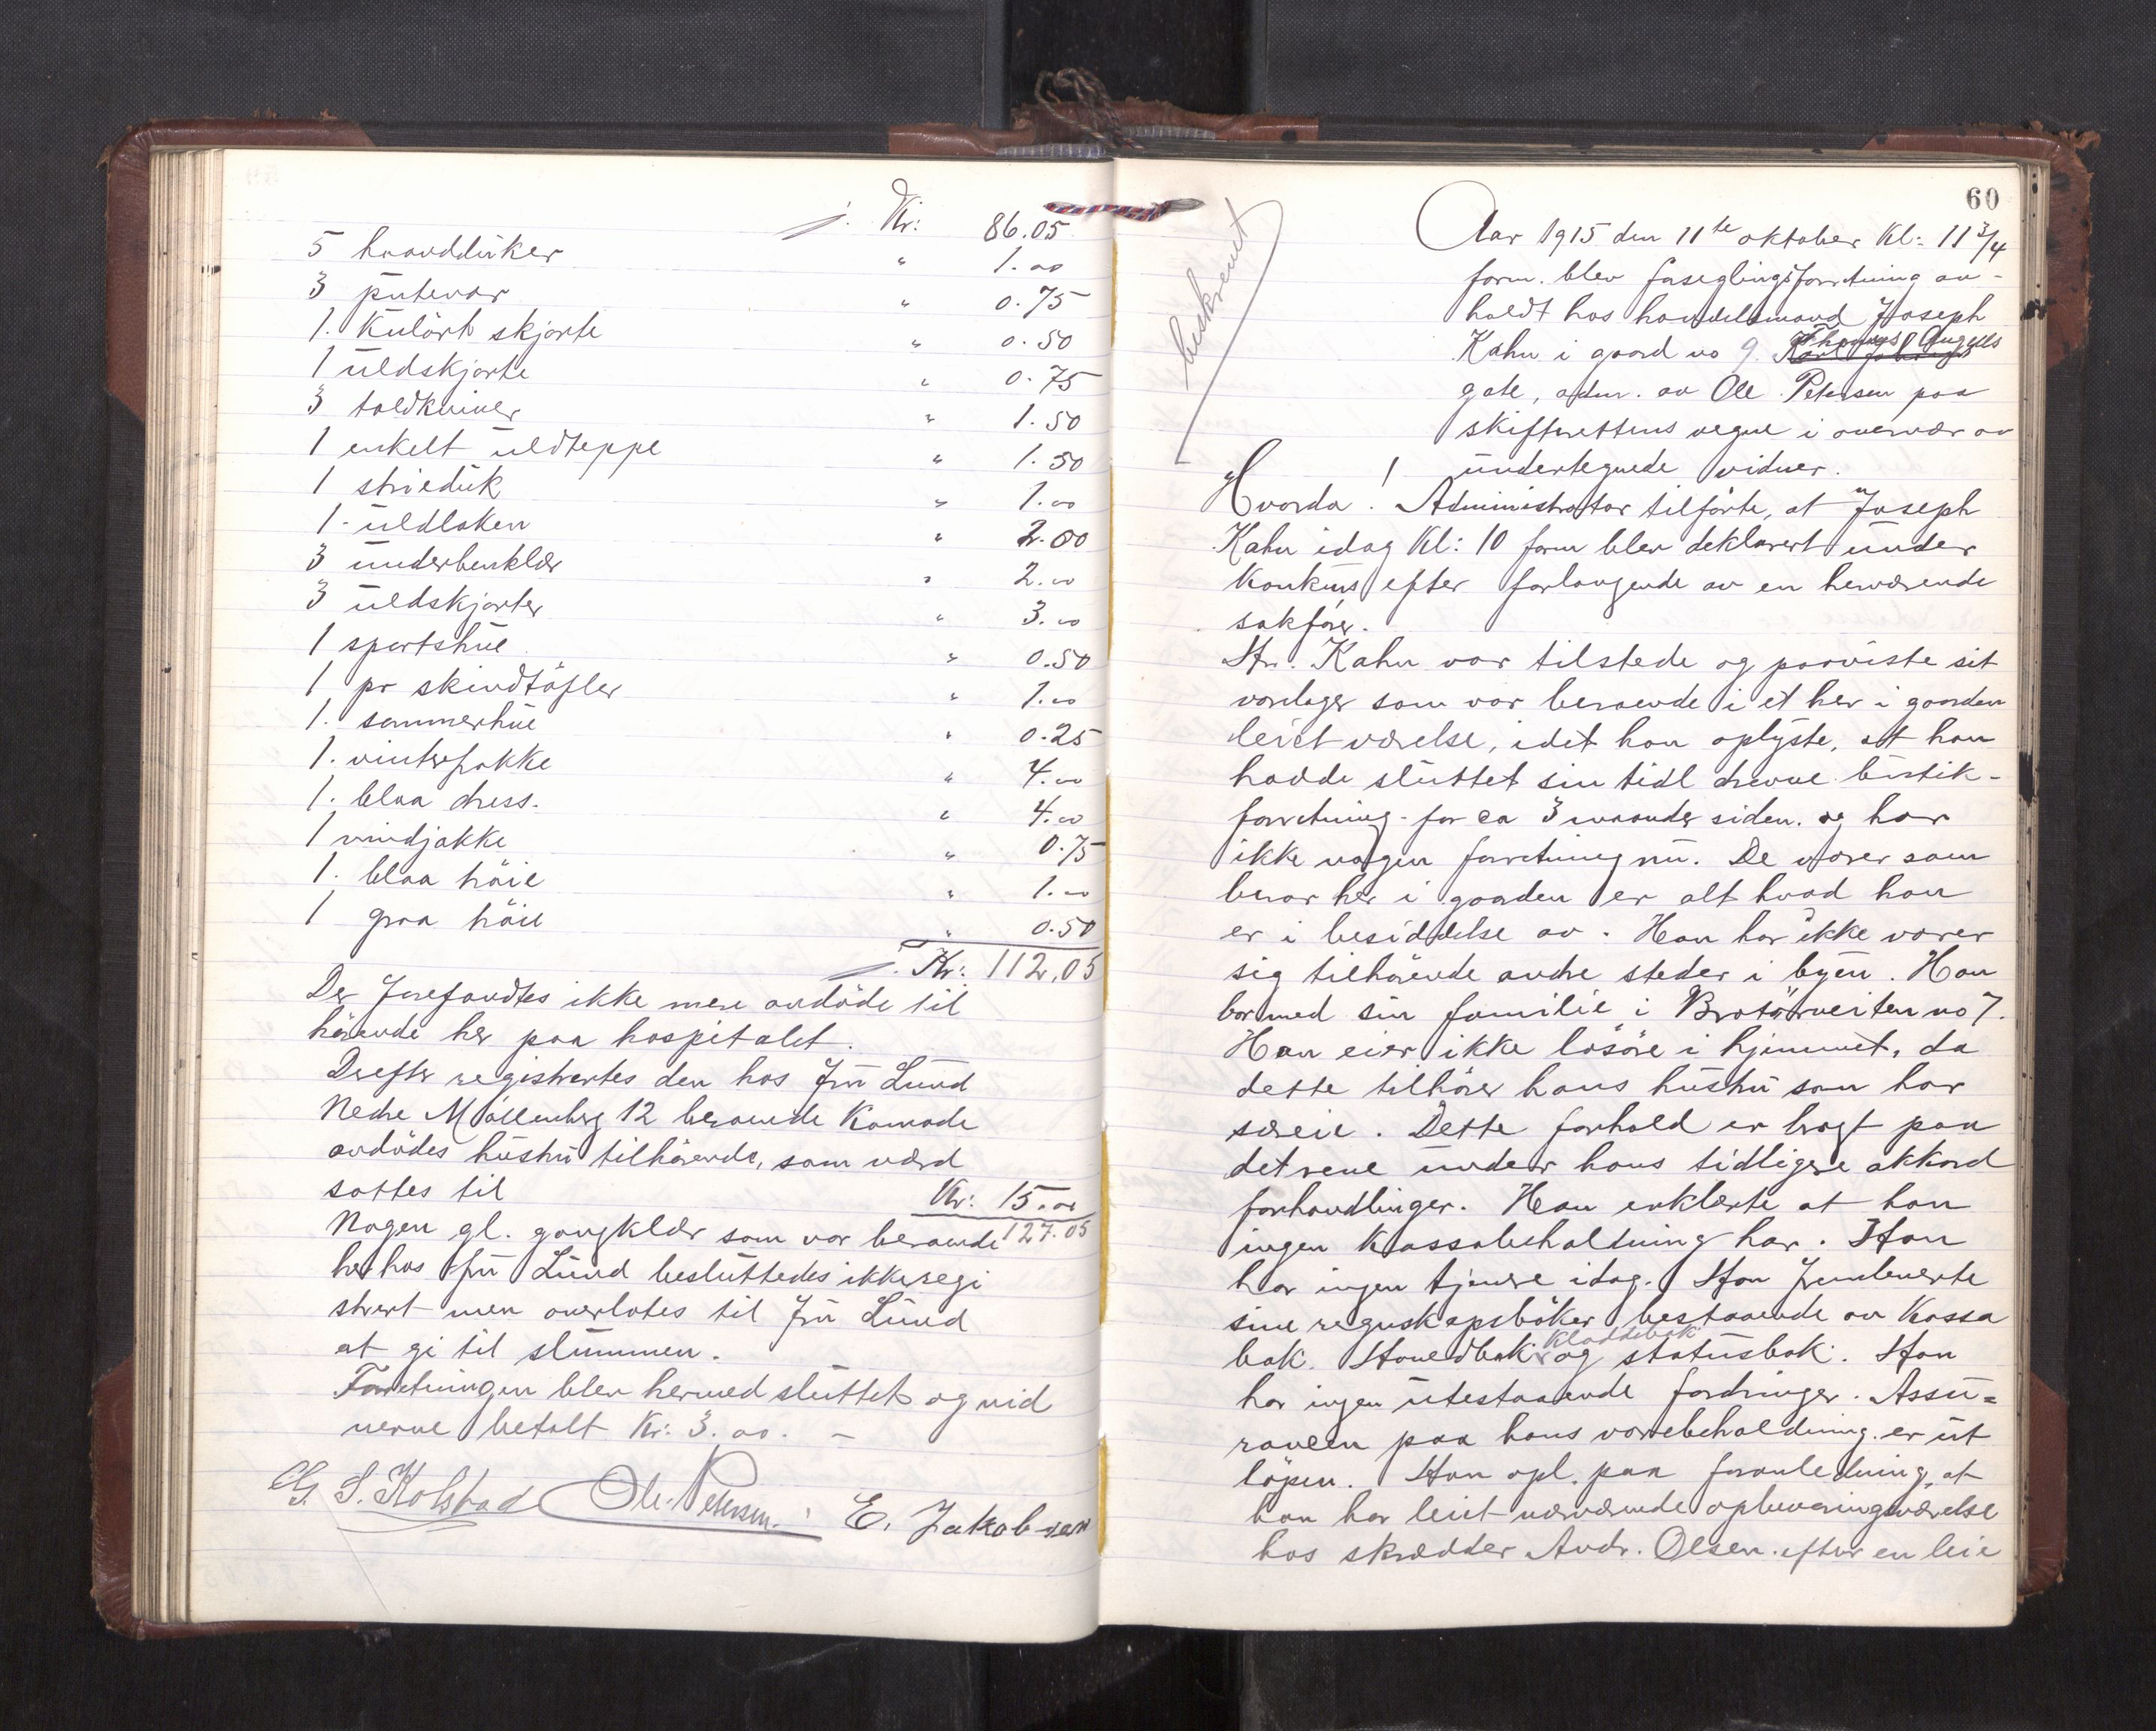 ./. Kr: 86.05
5 haandduker " 1.00
3 putevar " 0.75
1. Kulört skjorte " 0.50
1 uldskjorte " 0.75
3 toldkniver " 1.50
1 enkelt uldteppe " 1.50
1 strieduk " 1.00
1 uldlaken " 2.00
3 underbenklær " 2.00
3 uldskjorter " 3.00
1 sportshue " 0.50
1 pr skindtöfler " 1.00
1. sommerhue " 0.25
1. vinterfrakke " 4.00
1. blaa dress. " 4.00
1 vindjakke " 0.75
1. blaa tröie " 1.00
1 graa tröie " 0.50
./. Kr: 112,05
Der forefandtes ikke mere avdöde til
hörende her paa hospitalet.
Derefter registrertes den hos fru Lund
Nedre Möllenberg 12 beroende Komode
avdödes hustru tilhörende, som værd
sattes til Kr: 15.00
Nogen gl. gangklær som var beroende 127.05
her hos fru Lund besluttedes ikke regi
strert men overlates til fru Lund
at gi til slummen.
Forretningen blev hermed sluttet og vid
nerne betalt Kr: 3.00. –
G. S. Kolstad Ole Petersen. E. Jakobsen
60
beskrevet
Aar 1915 den 11te oktober Kl: 11 3/4
form. blev forseglingsforretning av-
holdt hos handelsmand Joseph
Kahn i gaard no 9. Thomas Angells
gate, adm. av Ole Petersen paa
skifterettens vegne i overvær av
undertegnede vidner.
Hvorda! Administrator tilförte, at Joseph
Kahn idag Kl: 10 form blev deklarert under
Konkurs efter forlangende av en herværende
sakförer.
Hr. Kahn var tilstede og paaviste sit
varelager som var beroende i et her i gaarden
leiet værelse, idet han oplyste, at han
hadde sluttet sin tidl drevne butik-
forretning for ca 3 maander siden. og har
ikke nogen forretning nu. De varer som
beror her i gaarden er alt hvad han
er i besiddelse av. Han har ikke varer
sig tilhörende andre steder i byen. Han
bor med sin familie i Brotörveiten no 7.
Han eier ikke lösöre i hjemmet, da
dette tilhörer hans hustru som har
særeie. Dette forhold er bragt paa
det rene under hans tidligere akkord
forhandlinger. Han erklærte at han
ingen Kassabeholdning har. Han
har ingen tjenere idag. Han fremleverte
sine regnskapsböker bestaaende av Kassa
bok. Hovedbok Kladdebok og statusbok. Han
har ingen utestaaende fordringer. Assu=
rancen paa hans varebeholdning er ut
löpen. Han opl. paa foranledning, at
han har leiet nærværende opbevaringsværelse
hos skrædder Andr. Olsen. efter en leie